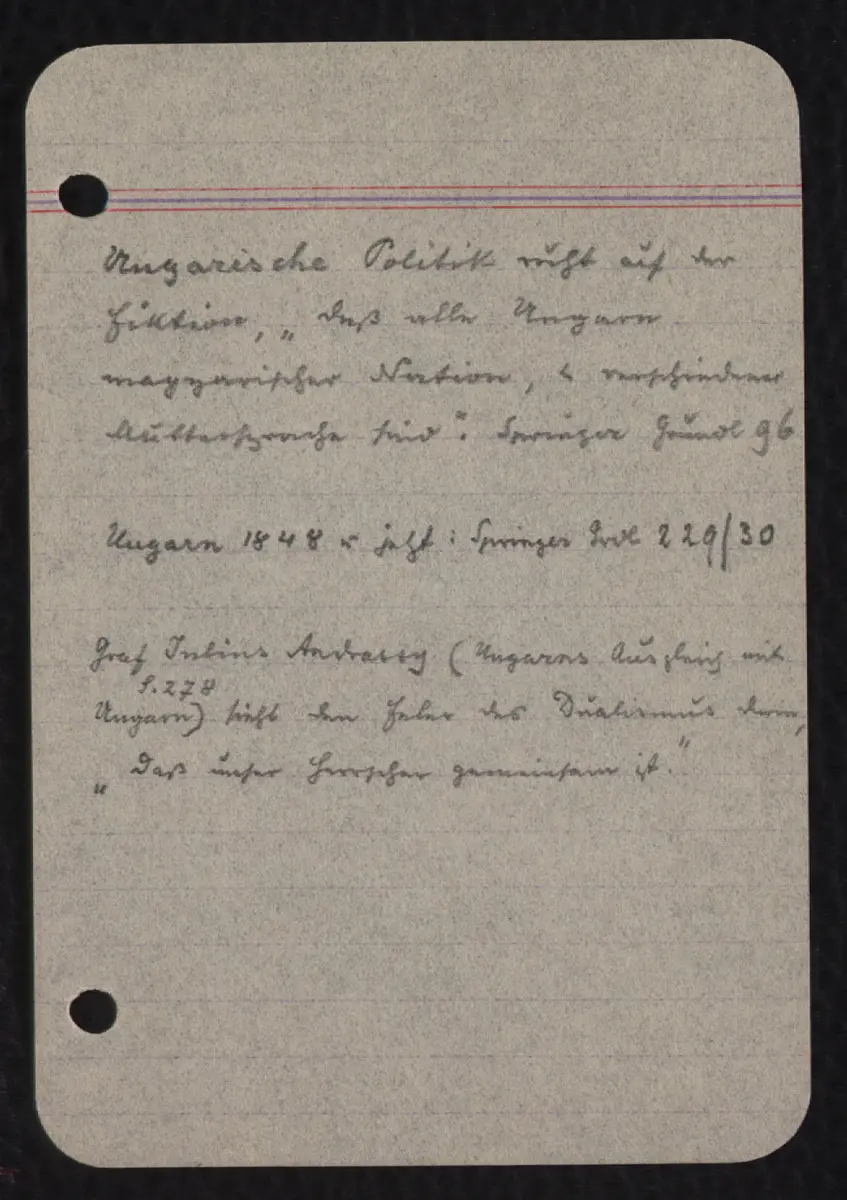 Ungarische Politik ruht auf der
Fiktion, „daß alle Ungarn
magyarischer Nation, & verschiedener
Muttersprache sind". Springer Grundl 96
Ungarn 1848 u jetzt: Springer Grdl 229/30
Graf Julius Andrassy (Ungarns Ausgleich mit
S. 278
Ungarn) sieht den Feler des Dualismus darin,
„daß unser Herrscher gemeinsam ist."